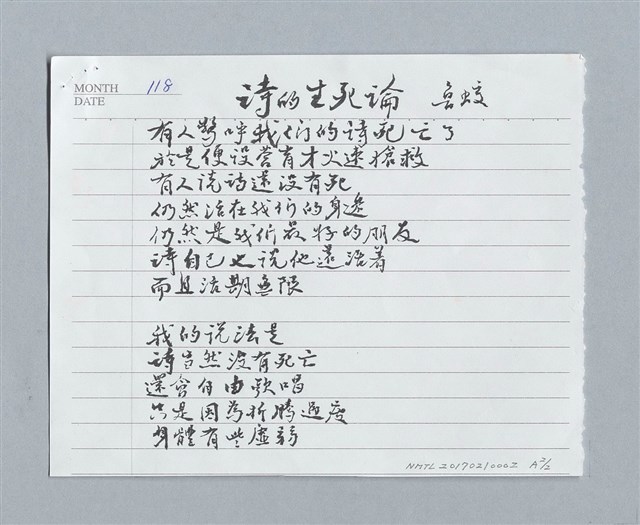 MONTH 118
DATE
詩的生死論 魯蛟
有人驚呼我们的詩死亡了
於是便设营育才火速搶救
有人说詩還没有死
仍然活在我们的身邊
仍然是我们最好的朋友
詩自己也说他還活着
而且活期無限
我的说法是
詩当然没有死亡
還會自由歌唱
只是因為折騰過度
身體有些虛弱
NMTL 20170210002 A 2/2